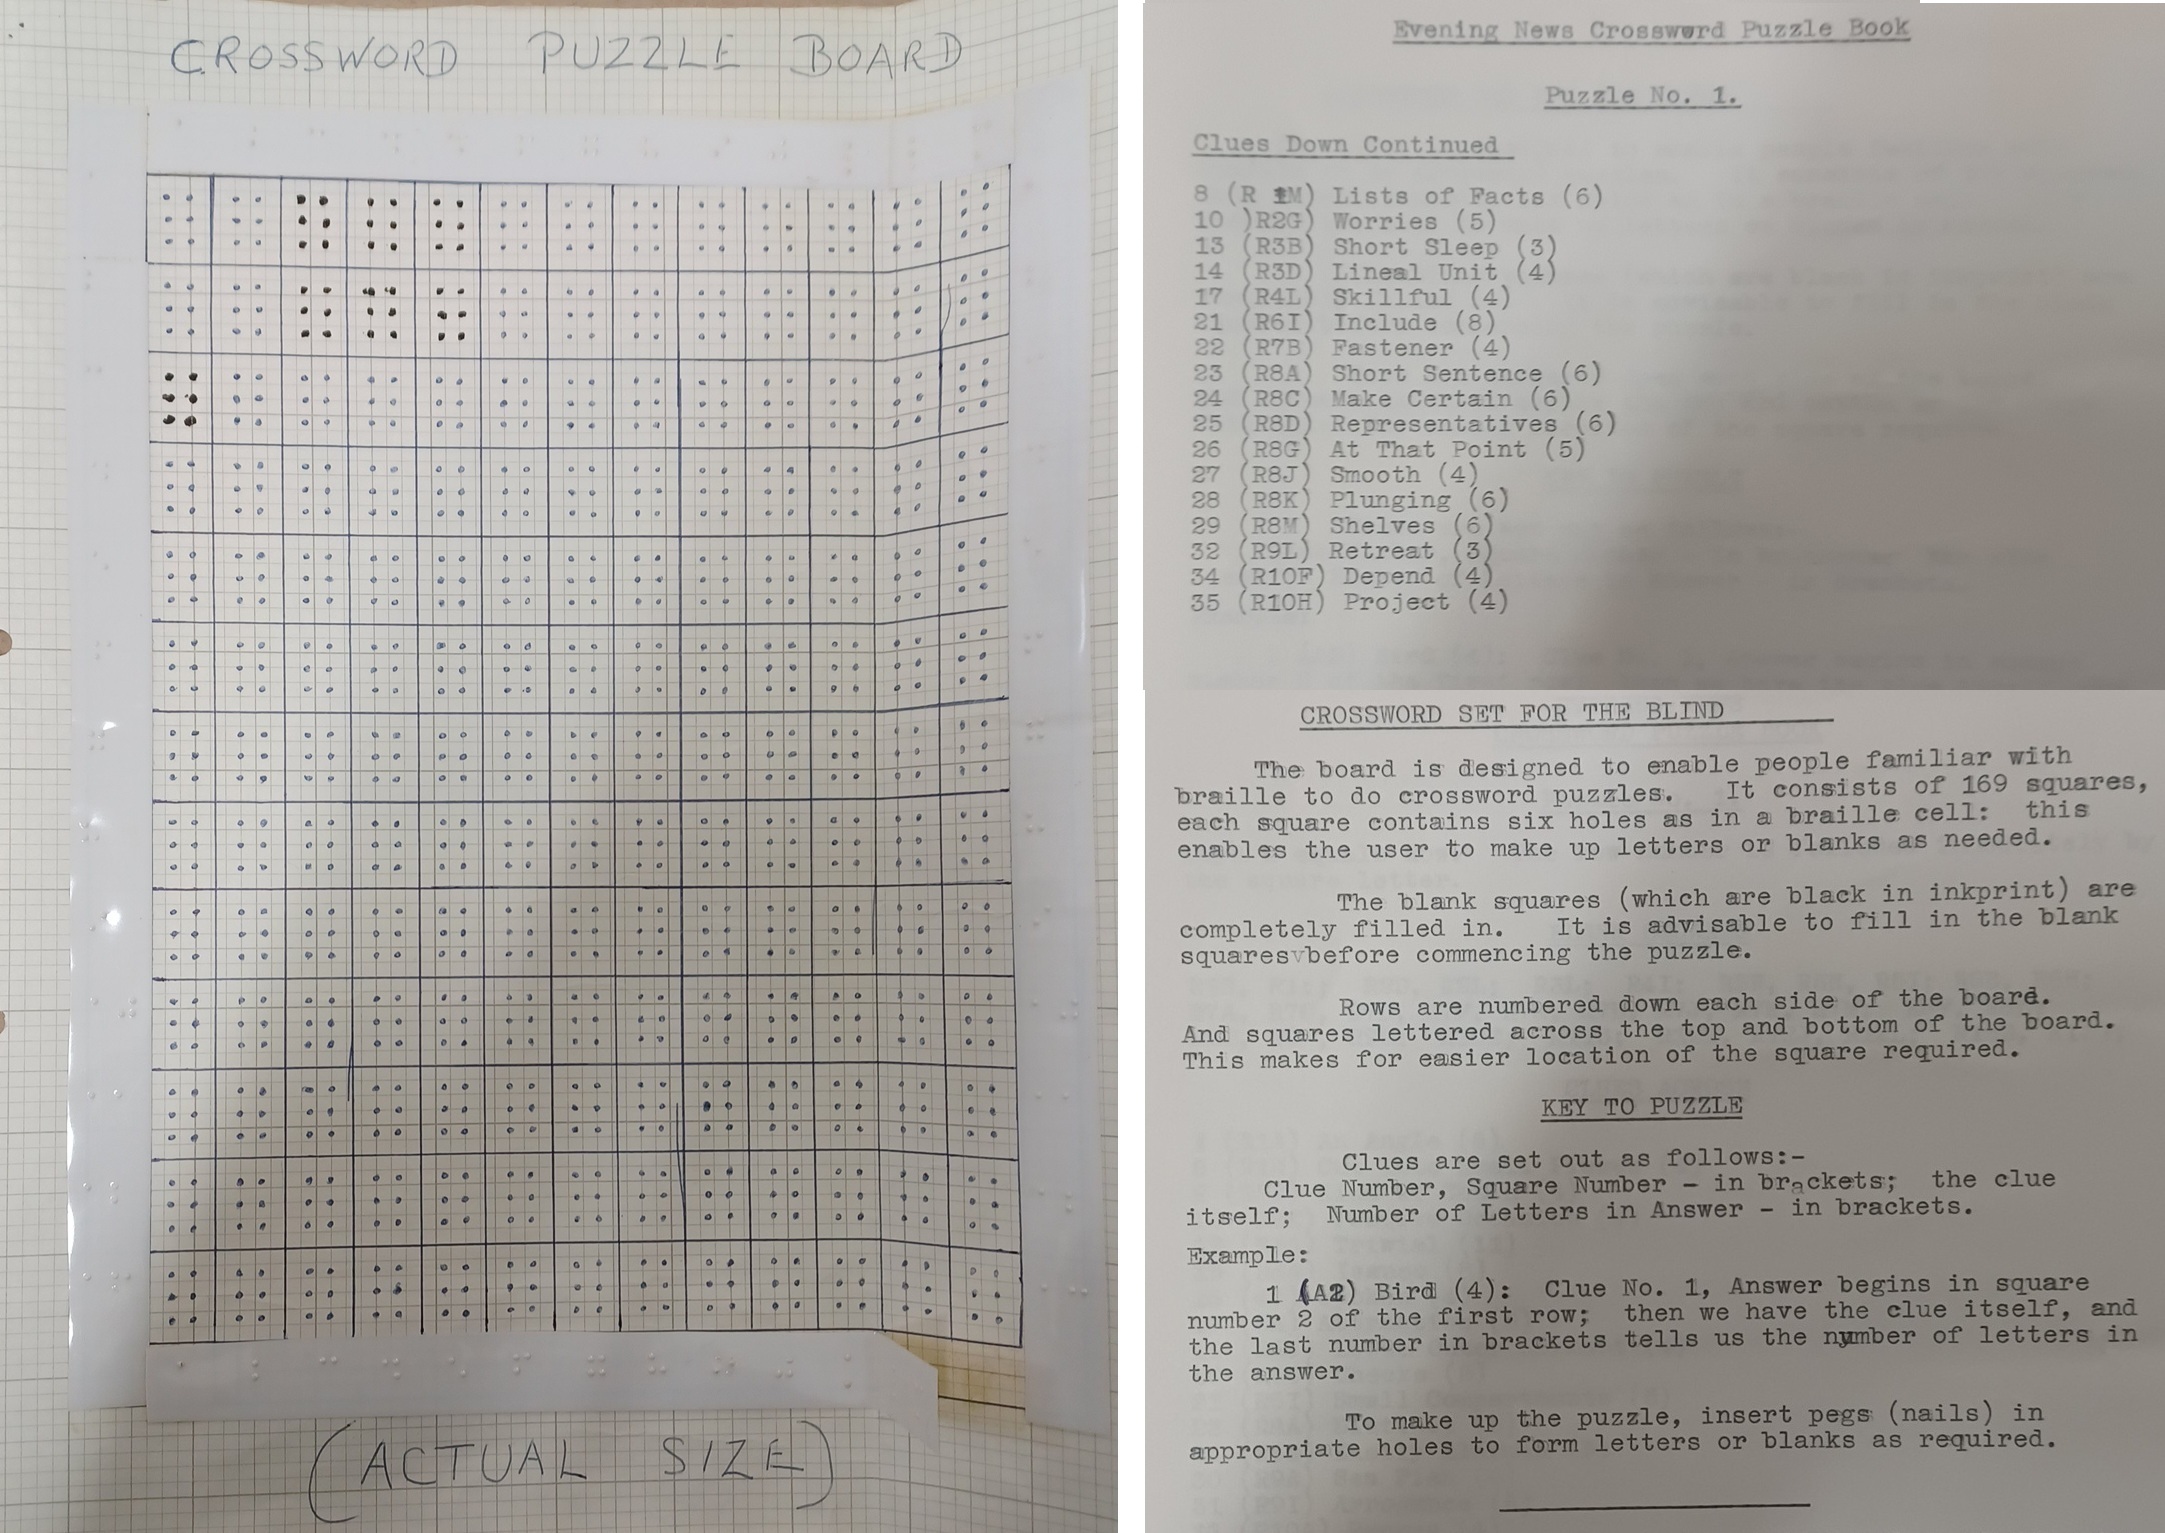 CROSSWORD PUZZLE BOARD
(ACTUAL SIZE)
Evening News Crossword Puzzle Book
Puzzle No. 1.
Clues Down Continued
8 (R 1M) Lists of Facts (6)
10 )R2G) Worries (5)
13 (R3B) Short Sleep (3)
14 (R3D) Lineal Unit (4)
17 (R4L) Skillful (4)
21 (R6I) Include (8)
22 (R7B) Fastener (4)
23 (R8A) Short Sentence (6)
24 (R8C) Make Certain (6)
25 (R8D) Representatives (6)
26 (R8G) At That Point (5)
27 (R8J) Smooth (4)
28 (R8K) Plunging (6)
29 (R8M) Shelves (6)
32 (R9L) Retreat (3)
34 (R10F) Depend (4)
35 (R10H) Project (4)
CROSSWORD SET FOR THE BLIND
The board is designed to enable people familiar with
braille to do crossword puzzles. It consists of 169 squares,
each square contains six holes as in a braille cell: this
enables the user to make up letters or blanks as needed.
The blank squares (which are black in inkprint) are
completely filled in. It is advisable to fill in the blank
squares before commencing the puzzle.
Rows are numbered down each side of the board.
And squares lettered across the top and bottom of the board.
This makes for easier location of the square required.
KEY TO PUZZLE
Clues are set out as follows:-
Clue Number, Square Number - in brackets; the clue
itself; Number of Letters in Answer - in brackets.
Example:
1 (A2) Bird (4): Clue No. 1, Answer begins in square
number 2 of the first row; then we have the clue itself, and
the last number in brackets tells us the number of letters in
the answer.
To make up the puzzle, insert pegs (nails) in
appropriate holes to form letters or blanks as required.